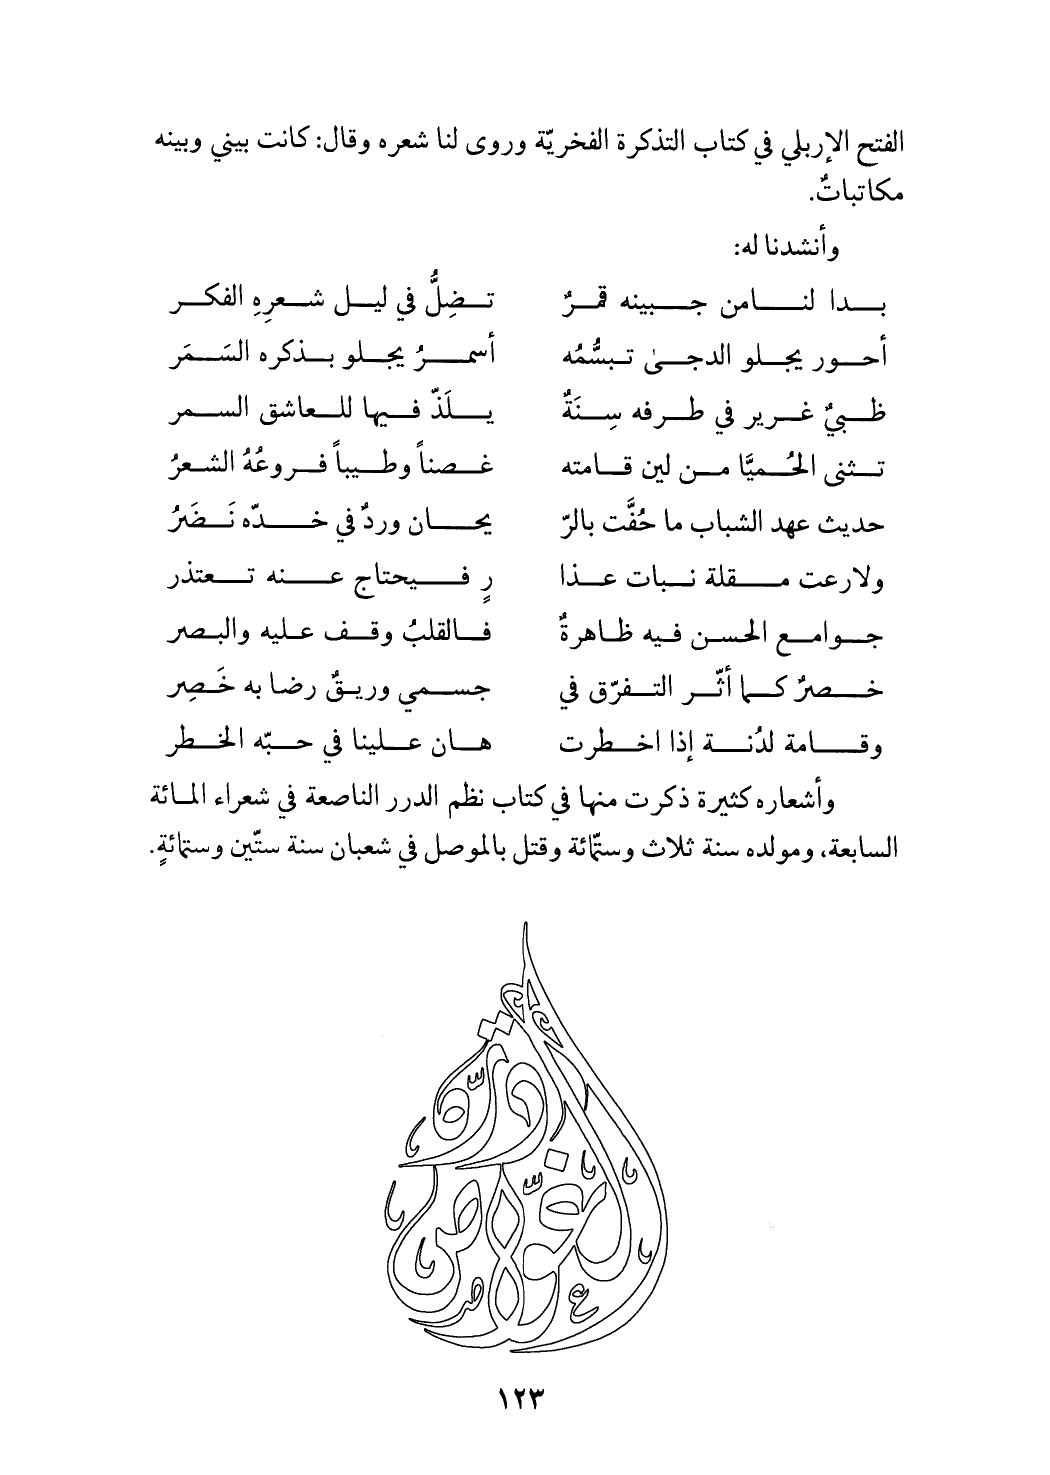 الفتح الإربلي في كتاب التذكرة الفخريّة وروى لنا شعره وقال: كانت بيني وبينه
مكاتباتٌ.
وأنشدنا له:
بدا لنامن جبينه قمرٌ تضِلُّ في ليل شعرِهِ الفكر
أحور يجلو الدجىٰ تبسُّمُه أسمرُ يجلو بذكره السَمَر
ظبيٌ غرير في طرفه سِنَةٌ يلَذّ فيها للعاشق السمر
تثنى الحُميَّا من لين قامته غصناً وطيباً فروعُهُ الشعرُ
حديث عهد الشباب ما حُفَّت بالرّ يحان وردٌ في خدّه نَضَرُ
ولارعت مقلة نبات عذا رٍ فيحتاج عنه تعتذر
جوامع الحسن فيه ظاهرةٌ فالقلبُ وقف عليه والبصر
خصرٌ كما أثّر التفرّق في جسمي وريقٌ رضا به خَصِر
وقامة لدُنة إذا اخطرت هان علينا في حبّه الخطر
وأشعاره كثيرة ذكرت منها في كتاب نظم الدرر الناصعة في شعراء المائة
السابعة، ومولده سنة ثلاث وستمّائة وقتل بالموصل في شعبان سنة ستّين وستمائةٍ.
درّة
الغوّاص
١٢٣